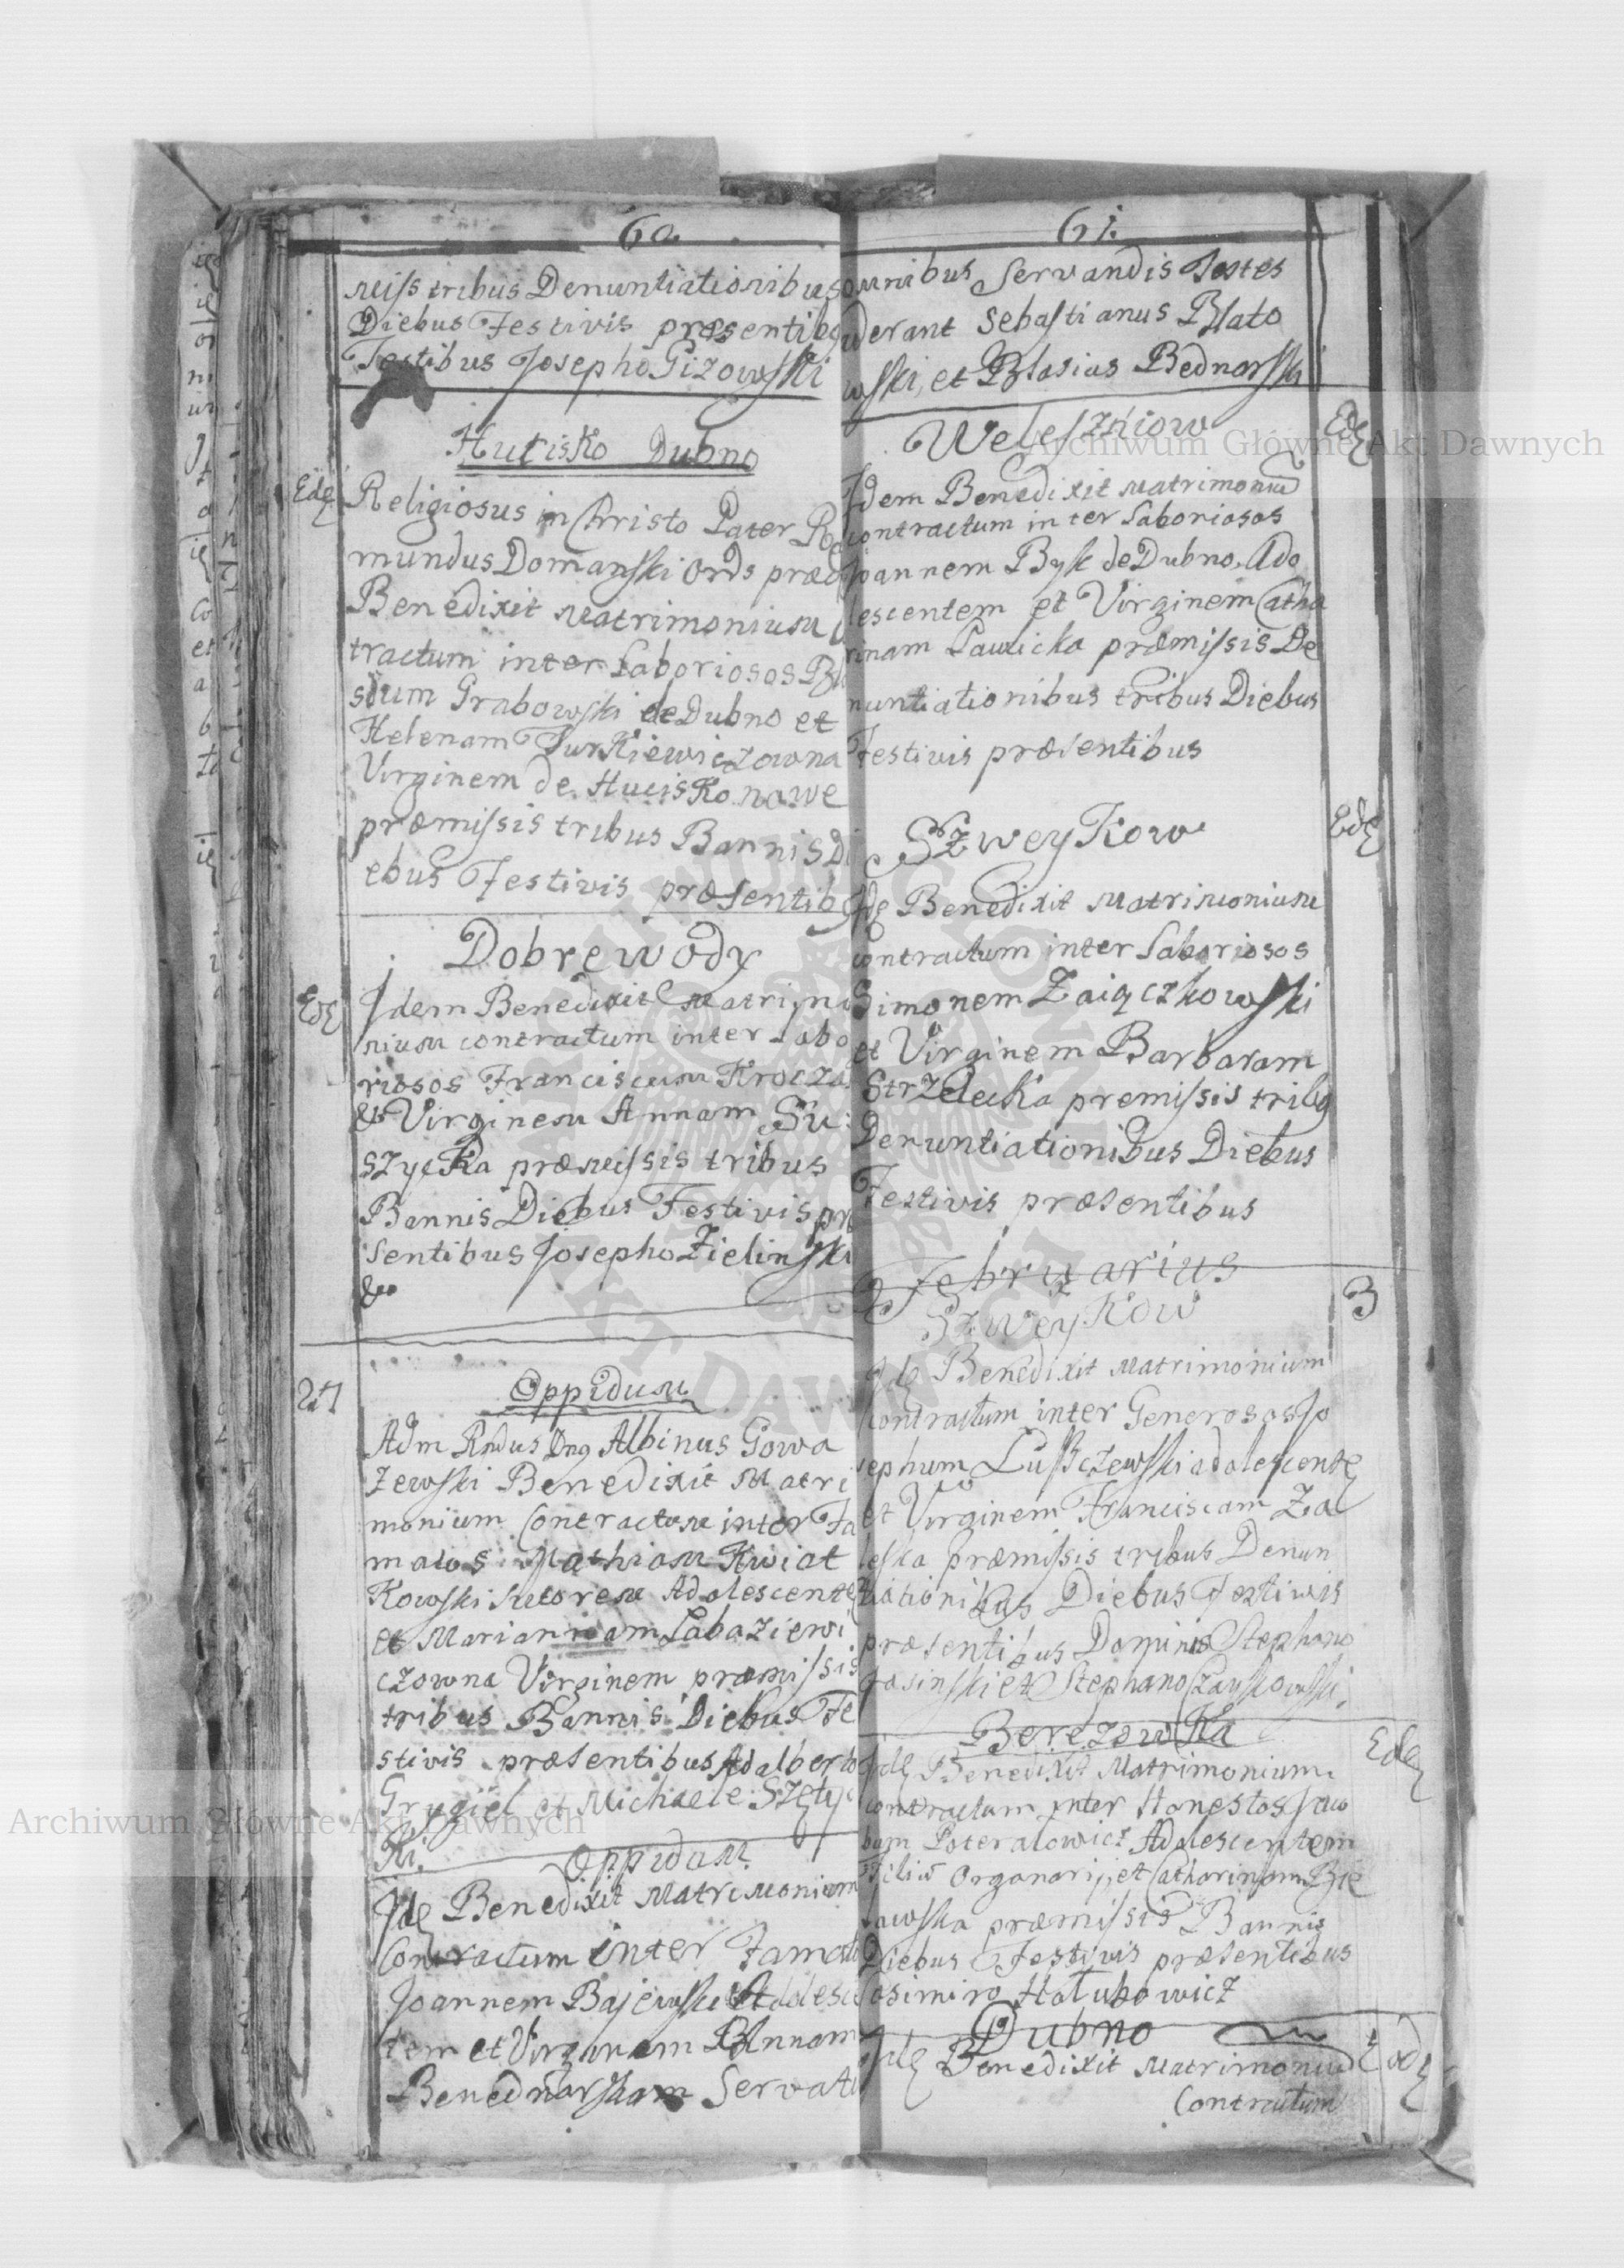 60.
miss tribus Denuntiationibus
Diebus Festivis præsentibq
Testibus Josepho Gizowski
Hucisko Dubno
Edē Religiosus in Christo Pater R
mundus Domanski Ords præd
Benedixit Matrimonium
tractum inter Laboriosos Bla
sium Grabowski de Dubno et
Helenam Turkiewiczowna
Virginem de Hucisko nowe
præmissis tribus Bannis Di
ebus Festivis præsentib
Dobrewody
Edē Jdem Benedixit Matrimo
nium contractum inter Labo
riosos Franciscum Krocza
et Virginem Annam Su:
szycka præmissis tribus
Bannis Diebus Festivis præ
sentibus Josepho Zielinski
&
27
Oppidum
Adm Rndus Dnq Albinus Gowa
rzewski Benedixit Matri
monium Contractum inter Fa
matos Mathiam Kwiat
kowski Sutorem Adolescente
et Mariannam Labaziewi
czowna Virginem præmissis
tribus Bannis Diebus Fe
stivis præsentibus Adalberto
Grygiel et Michaele Szęty
ki.
Oppidum
Jdē Benedixit Matrimonium
Contractum inter Famat
Joannem Bajewski Adolesce
tem et Virginem Annam
Benednarskam Servati
61.
omnibus Servandis Testes
aderant Sebastianus Blato
wski, et Blasius Bednarski
Weleszniow Edē
Jdem Benedixit Matrimoniū
contractum inter Laboriosos
Joannem Byk de Dubno, Ado
lescentem et Virginem Catha
rinam Pawlicka præmissis De
nuntiationibus tribus Diebus
Festivis præsentibus
Szweykow Edē
Jdē Benedixit Matrimonium
contractum inter Laboriosos
Simonem Zaiączkowski
et Virginem Barbaram
Strzelecka premissis tribq
Denuntiationibus Diebus
Festivis præsentibus
Februarius
Szweykow 3
Jdē Benedixit Matrimonium
contractum inter Generosos Jo
sephum Luszczewski adolescentē
et Virginem Franciscam Za
leska præmissis tribus Denun
tiationibus Diebus Festivis
præsentibus Dominis Stephano
Jasinski et Stephano Czaykowski.
Berezowka Edē
Jdē Benedixit Matrimonium
contractum inter Honestos Jaco
bum Poteralowicz Adolescentem
Filiū Organarij, et Catharinam Bie
lawska præmissis Bannis
Diebus Festivis præsentibus
Casimiro Hołubowicz
Dubno
Jdē Benedixit Matrimoniū Edē
Contractum
Archiwum Główne Akt Dawnych
Archiwum Główne Akt Dawnych
ARCHIWUM GŁÓWNE AKT DAWNYCH